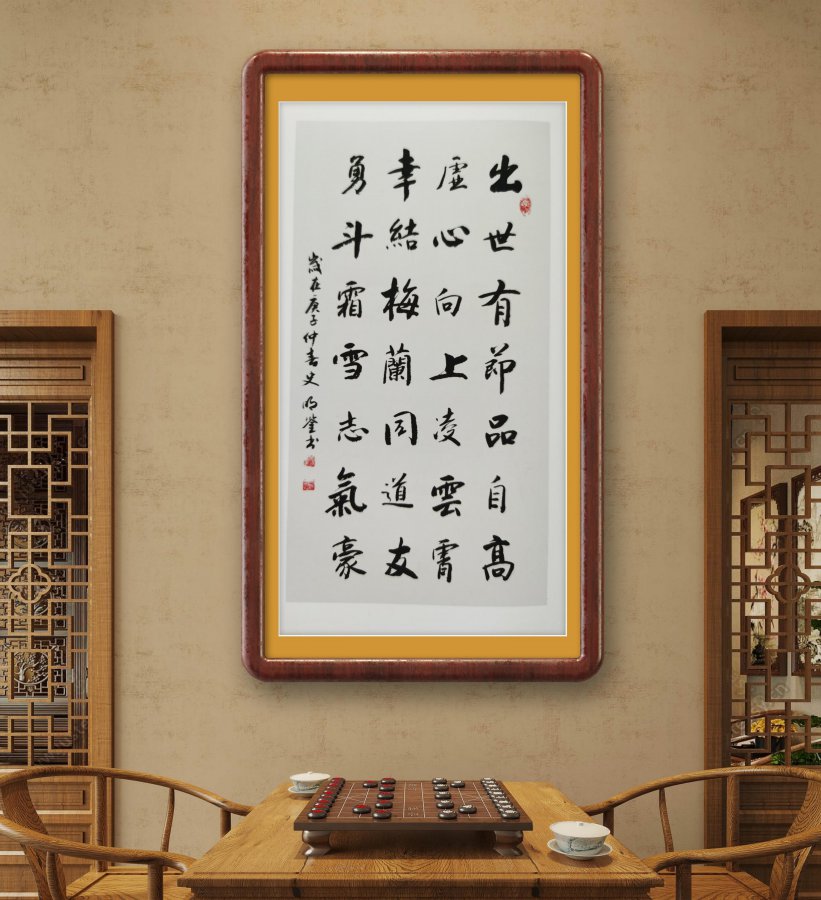 出世有節品自高
虛心向上凌雲霄
幸結梅蘭同道友
勇斗霜雪志氣豪
歲在庚子仲春史明瑩书